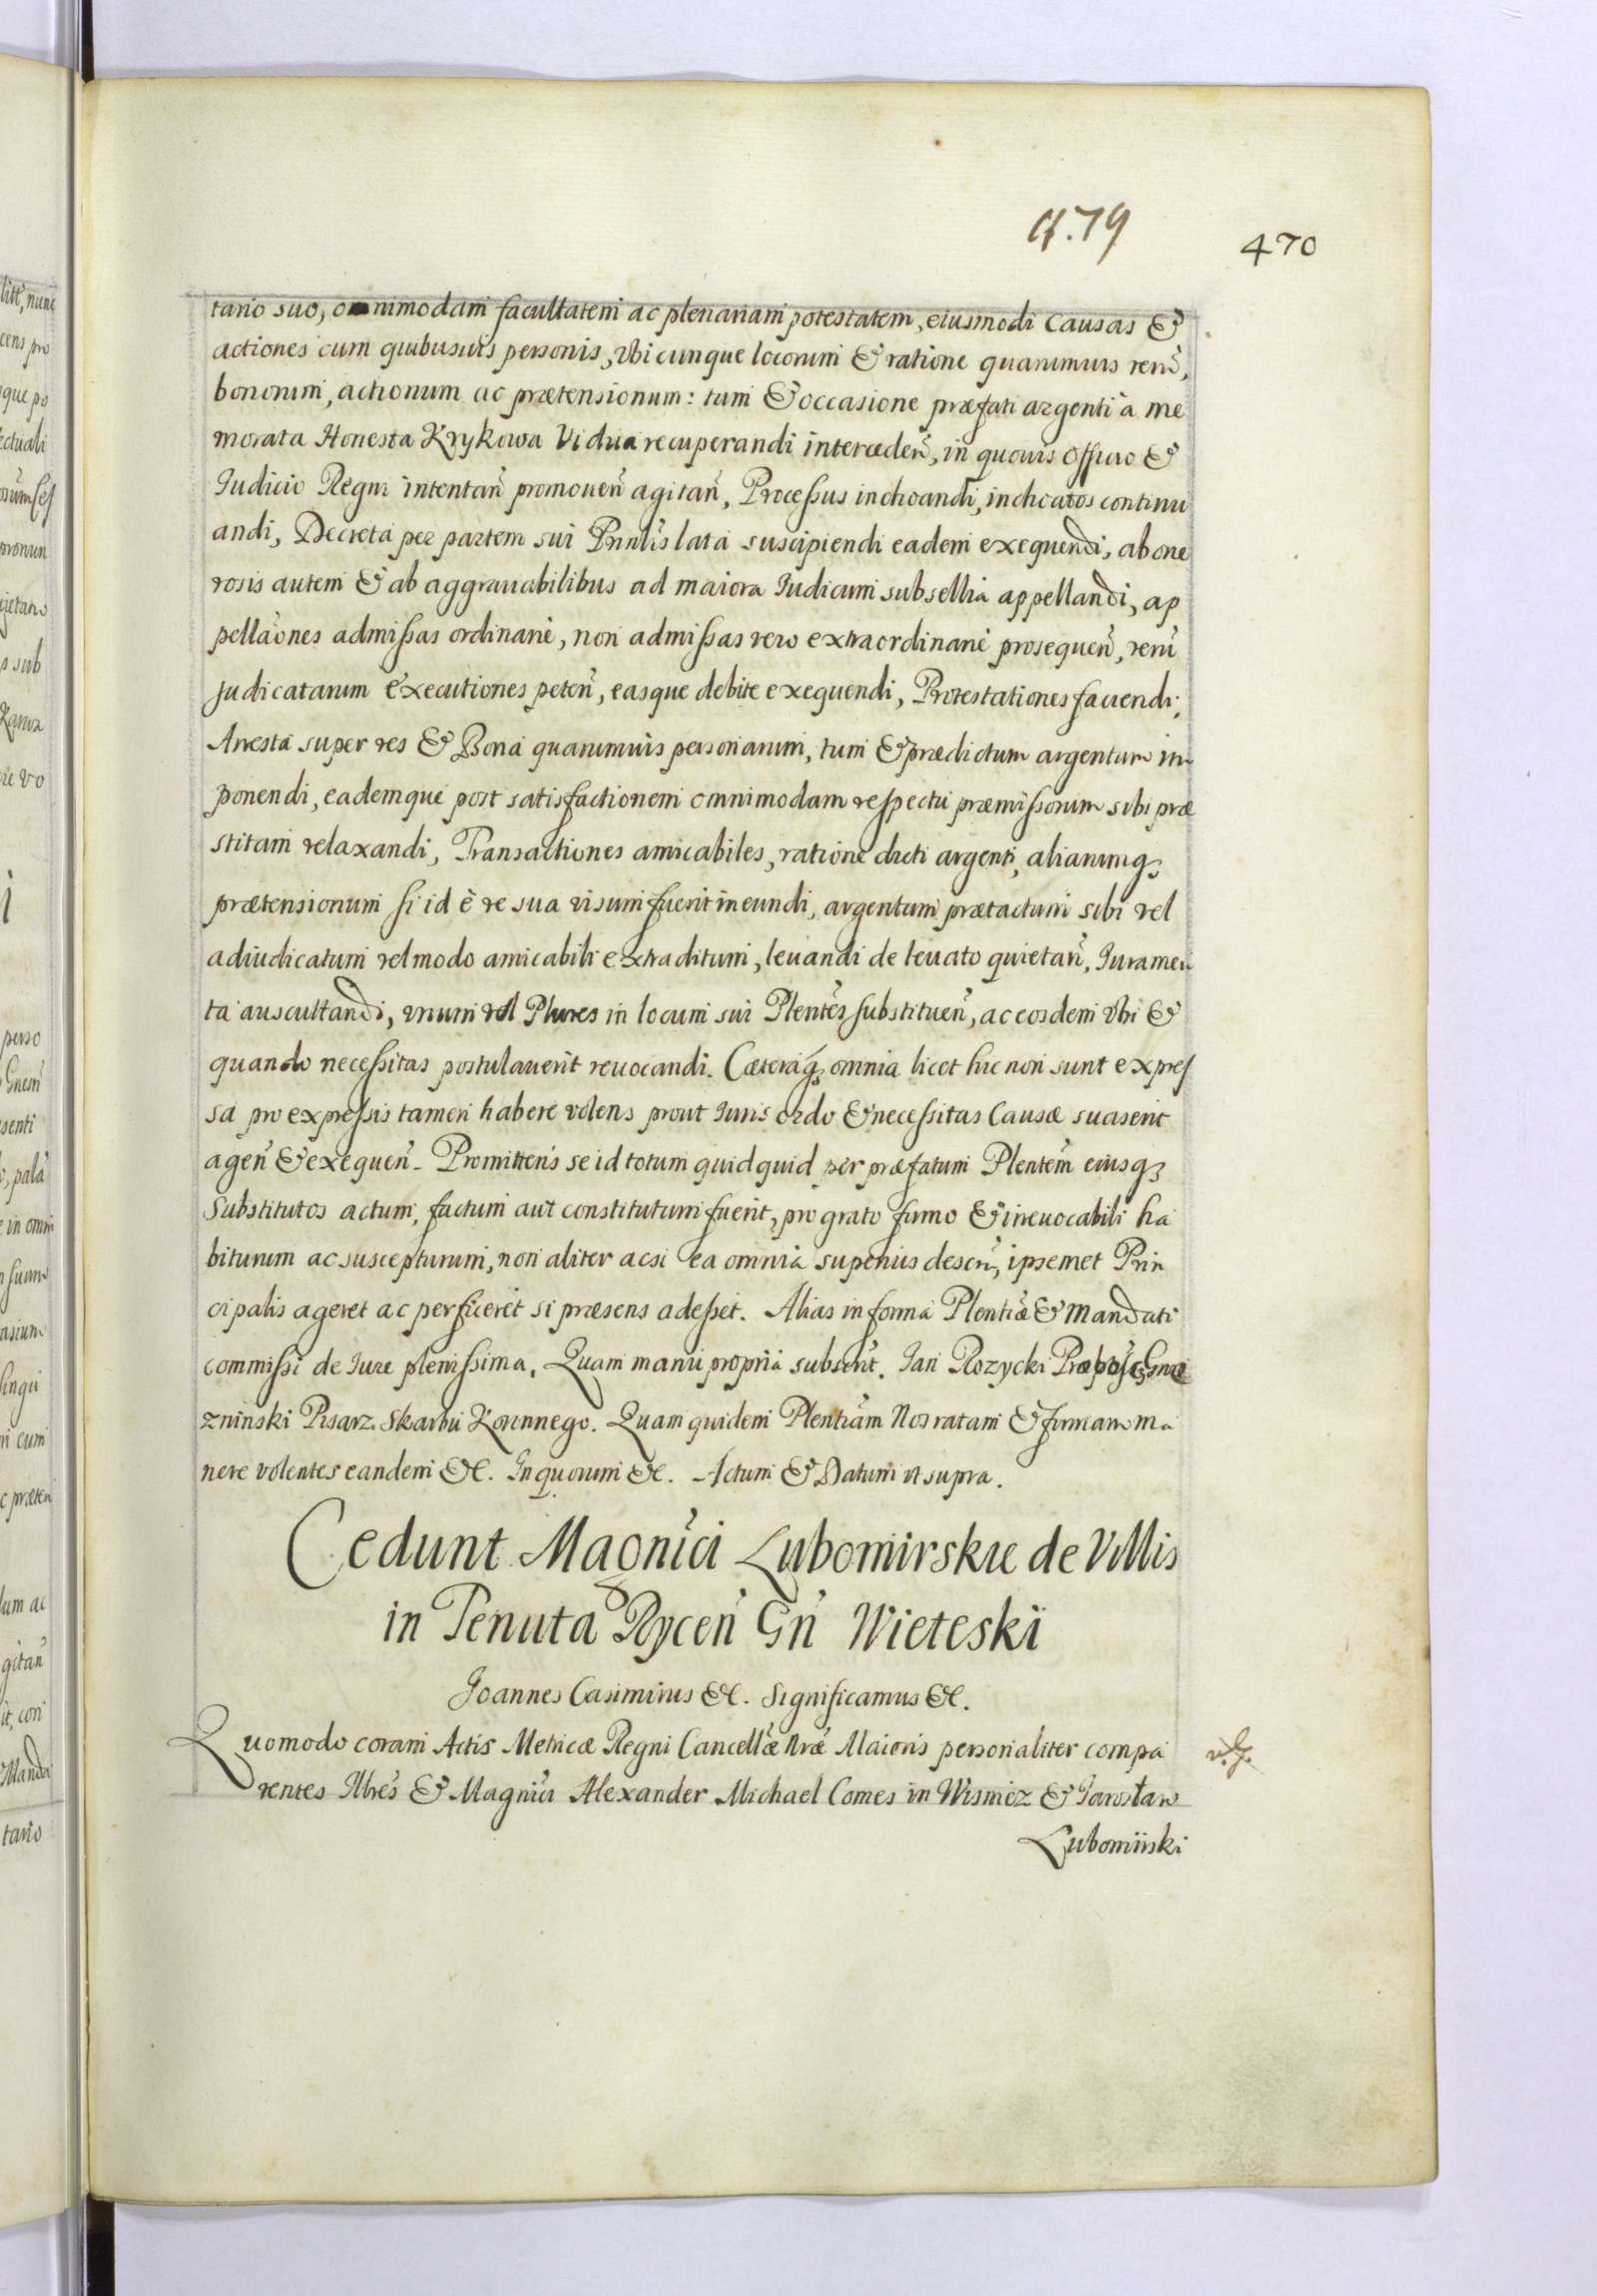 470
tario suo, omnimodam facultatem ac plenariam potestatem, eiusmodi Causas &
actiones cum quibusuis personis, vbicunque locorum & ratione quarumuis reru̅,
bonorum, actionum ac prætensionum: tum & occasione præfati argenti à me
morata Honesta Krykowa Vidua recuperandi interceden̅, in quouis Officio &
Iudicio Regni intentan̅ promouen̅ agitan̅, Processus inchoandi, inchoatos continu
andi, Decreta per partem sui Prinlis lata suscipiendi eadem exequendi, ab one
rosis autem & ab aggrauabilibus ad maiora Iudicum subsellia appellandi, ap
pellaones admissas ordinarie, non admissas vero extraordinarie prosequen̅, reru̅
judicatarum executiones peten̅, easque debite exequendi, Protestationes faciendi,
Arresta super res & Bona quarumuis personarum, tum & prædictum argentum im
ponendi, eademque post satisfactionem omnimodam respectu præmissorum sibi præ
stitam relaxandi, Transactiones amicabiles, ratione dicti argenti, aliarumq;
prætensionum si id è re sua visum fuerit ineundi, argentum prætactum sibi vel
adiudicatum vel modo amicabili extraditum, leuandi de leuato quietan̅, Iuramen
ta auscultandi, vnum vel Plures in locum sui Plentes substituen̅, ac eosdem vbi &
quando necessitas postulauerit reuocandi. Cæteraq; omnia licet hic non sunt expres
sa pro expressis tamen habere volens prout Iuris ordo & necessitas Causæ suaserit
agen̅ & exequen̅. Promittens se id totum quidquid per præfatum Plentem eiusq;
Substitutos actum, factum aut constitutum fuerit, pro grato firmo & irreuocabili ha
biturum ac suscepturum, non aliter acsi ea omnia superius descr̅, ipsemet Prin
cipalis ageret ac perficeret si præsens adesset. Alias in forma Plentiæ & Mandati
commissi de Iure plenissima. Quam manu propria subscrit. Jan Rozycki
zninski Pisarz Skarbu Koronnego. Quam quidem Plentiam Nos ratam & firmam ma
nere volentes eandem &c. In quorum &c. Actum & Datum vt supra.
Cedunt Magnici Lubomirskie de Villis
in Tenuta Rycen̅ Gn̅ Wieteski
Joannes Casimirus &c. Significamus &c.
Quomodo coram Actis Metricæ Regni Cancellæ Nræ Maioris personaliter compa
rentes Illres & Magnici Alexander Michael Comes in Wisnicz & Jarosław
Lubomirski